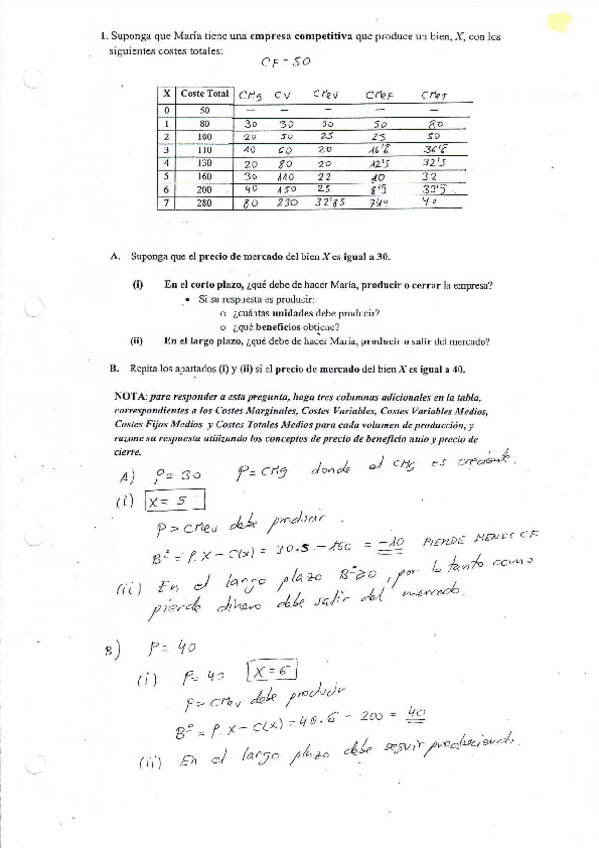 1. Suponga que María tiene una empresa competitiva que produce un bien, X, con los
siguientes costes totales:
CF = 50
X Coste Total CMg CV CMeV CMeF CMeT
0 50 — — — — —
1 80 30 30 30 50 80
2 100 20 50 25 25 50
3 110 10 60 20 16'6 36'6
4 130 20 80 20 12'5 32'5
5 160 30 110 22 10 32
6 200 40 150 25 8'3 33'3
7 280 80 230 32'85 40
A. Suponga que el precio de mercado del bien X es igual a 30.
(i) En el corto plazo, ¿qué debe de hacer María, producir o cerrar la empresa?
• Si su respuesta es producir:
o ¿cuántas unidades debe producir?
o ¿qué beneficios obtiene?
(ii) En el largo plazo, ¿qué debe de hacer María, producir o salir del mercado?
B. Repita los apartados (i) y (ii) si el precio de mercado del bien X es igual a 40.
NOTA: para responder a esta pregunta, haga tres columnas adicionales en la tabla,
correspondientes a los Costes Marginales, Costes Variables, Costes Variables Medios,
Costes Fijos Medios y Costes Totales Medios para cada volumen de producción, y
razone su respuesta utilizando los conceptos de precio de beneficio nulo y precio de
cierre.
A) P = 30 P = CMg donde el CMg es creciente.
(i) X = 5
P > CMeV debe producir.
Bº = P.X - C(X) = 30.5 - 160 = -10 PIERDE MENOS CF
(ii) En el largo plazo Bº≥0, por lo tanto como
pierde dinero debe salir del mercado.
B) P = 40
(i) P = 40 X = 6
P > CMeV debe producir
Bº = P.X - C(X) = 40.6 - 200 = 40
(ii) En el largo plazo debe seguir produciendo.